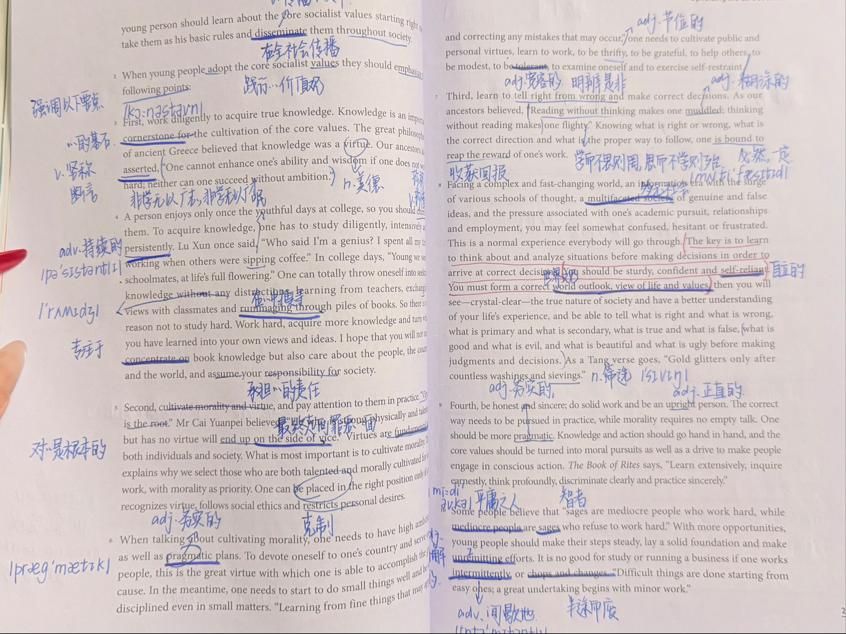 young person should learn about the core socialist values starting right
take them as his basic rules and disseminate them throughout society.
在全社会传播
When young people adopt the core socialist values they should emphasize
践行…价值观
强调以下要点
following points:
First, work diligently to acquire true knowledge. Knowledge is an
…的基石
cornerstone for the cultivation of the core values. The great
of ancient Greece believed that knowledge was a virtue. Our
v.坚称
断言
asserted, "One cannot enhance one's ability and wisdom if one does not
hard; neither can one succeed without ambition."
n.美德
非学无以广才,非学无以广识
A person enjoys only once the youthful days at college, so you should
them. To acquire knowledge, one has to study diligently,
adv.持续的
persistently. Lu Xun once said, "Who said I'm a genius? I spent all
working when others were sipping coffee." In college days, "Young
schoolmates, at life's full flowering." One can totally throw oneself into
knowledge without any distraction, learning from teachers,
views with classmates and rummaging through piles of books. So there
reason not to study hard. Work hard, acquire more knowledge and turn
专注于
you have learned into your own views and ideas. I hope that you will not
concentrate on book knowledge but also care about the people, the
and the world, and assume your responsibility for society.
承担…的责任
Second, cultivate morality and virtue, and pay attention to them in practice.
is the root." Mr Cai Yuanpei believed physically and
but has no virtue will end up on the side of vice. Virtues are
对…是根本的
both individuals and society. What is most important is to cultivate
explains why we select those who are both talented and morally cultivated
work, with morality as priority. One can be placed in the right position only
recognizes virtue, follows social ethics and restricts personal desires.
adj.务实的
克制
When talking about cultivating morality, one needs to have high
as well as pragmatic plans. To devote oneself to one's country and
people, this is the great virtue with which one is able to accomplish
cause. In the meantime, one needs to start to do small things well and
disciplined even in small matters. "Learning from fine things that may
adj.节俭的
and correcting any mistakes that may occur, one needs to cultivate public and
personal virtues, learn to work, to be thrifty, to be grateful, to help others, to
be modest, to be tolerant, to examine oneself and to exercise self-restraint.
adj.宽容的
明辨是非
adj.糊涂的
Third, learn to tell right from wrong and make correct decisions. As our
ancestors believed, "Reading without thinking makes one muddled; thinking
without reading makes one flighty." Knowing what is right or wrong, what is
the correct direction and what is the proper way to follow, one is bound to
reap the reward of one's work.
学而不思则罔,思而不学则殆
必然,一定
收获回报
Facing a complex and fast-changing world, an information era with the surge
of various schools of thought, a multifaceted society of genuine and false
ideas, and the pressure associated with one's academic pursuit, relationships
and employment, you may feel somewhat confused, hesitant or frustrated.
This is a normal experience everybody will go through. The key is to learn
to think about and analyze situations before making decisions in order to
arrive at correct decisions. You should be sturdy, confident and self-reliant.
自立的
You must form a correct world outlook, view of life and values; then you will
see—crystal-clear—the true nature of society and have a better understanding
of your life's experience, and be able to tell what is right and what is wrong,
what is primary and what is secondary, what is true and what is false, what is
good and what is evil, and what is beautiful and what is ugly before making
judgments and decisions. As a Tang verse goes, "Gold glitters only after
countless washings and sievings."
n.筛选
adj.务实的
adj.正直的
Fourth, be honest and sincere; do solid work and be an upright person. The correct
way needs to be pursued in practice, while morality requires no empty talk. One
should be more pragmatic. Knowledge and action should go hand in hand, and the
core values should be turned into moral pursuits as well as a drive to make people
engage in conscious action. The Book of Rites says, "Learn extensively, inquire
earnestly, think profoundly, discriminate clearly and practice sincerely."
平庸之人
智者
Some people believe that "sages are mediocre people who work hard, while
mediocre people are sages who refuse to work hard." With more opportunities,
young people should make their steps steady, lay a solid foundation and make
unremitting efforts. It is no good for study or running a business if one works
intermittently or chops and changes. "Difficult things are done starting from
easy ones; a great undertaking begins with minor work."
adv.间歇地
半途而废